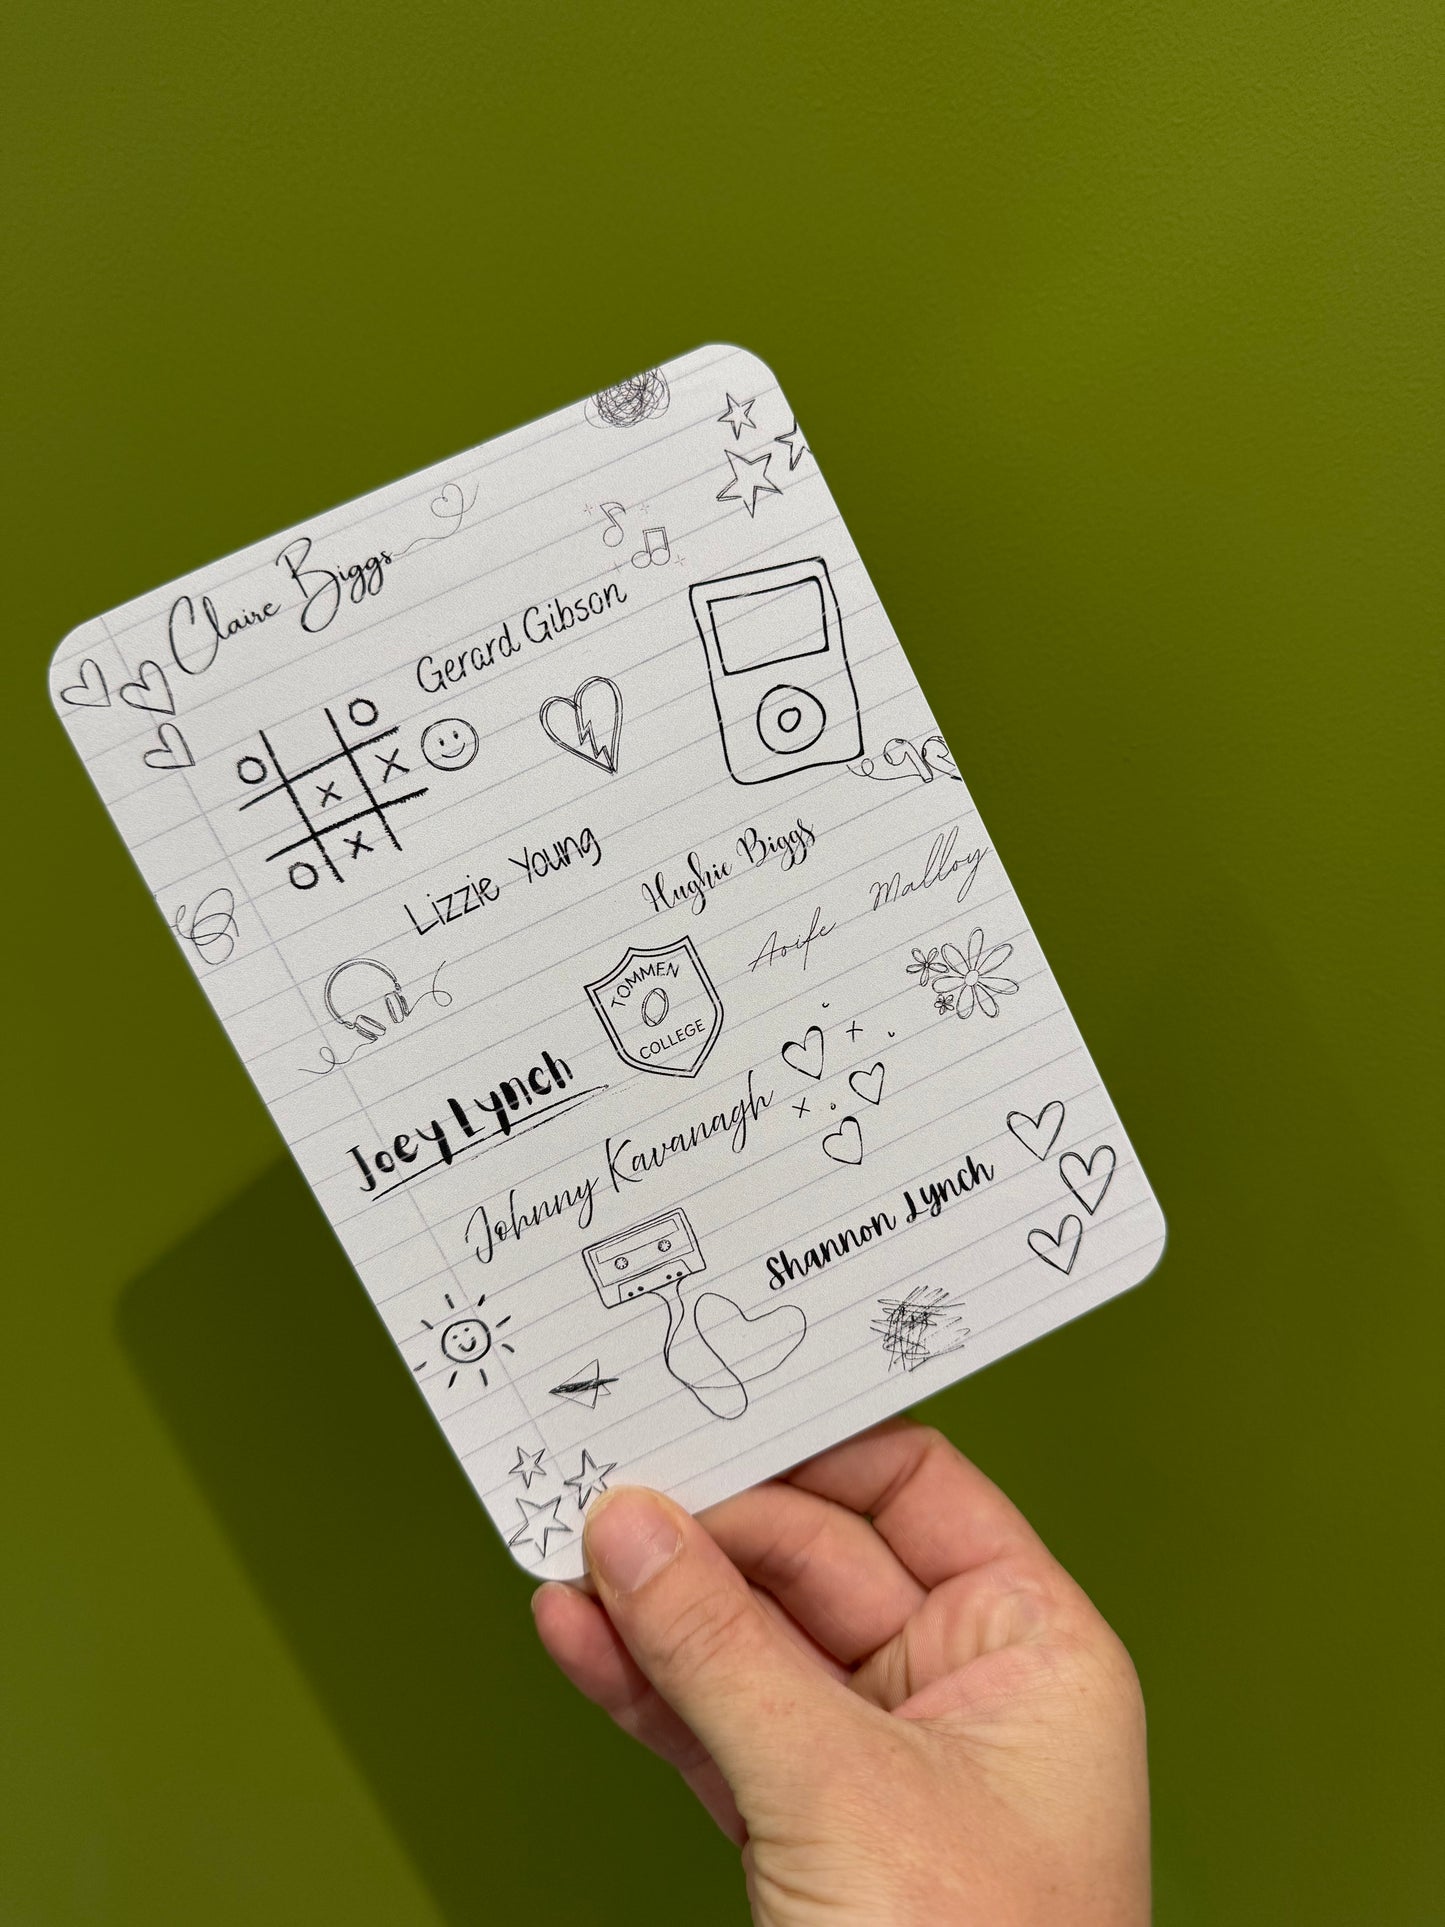 Claire Biggs
Gerard Gibson
O
O
X
X
O
X
Lizzie Young
Hughie Biggs
Aoife Malloy
TOMMEN
COLLEGE
Joey Lynch
Johnny Kavanagh
Shannon Lynch